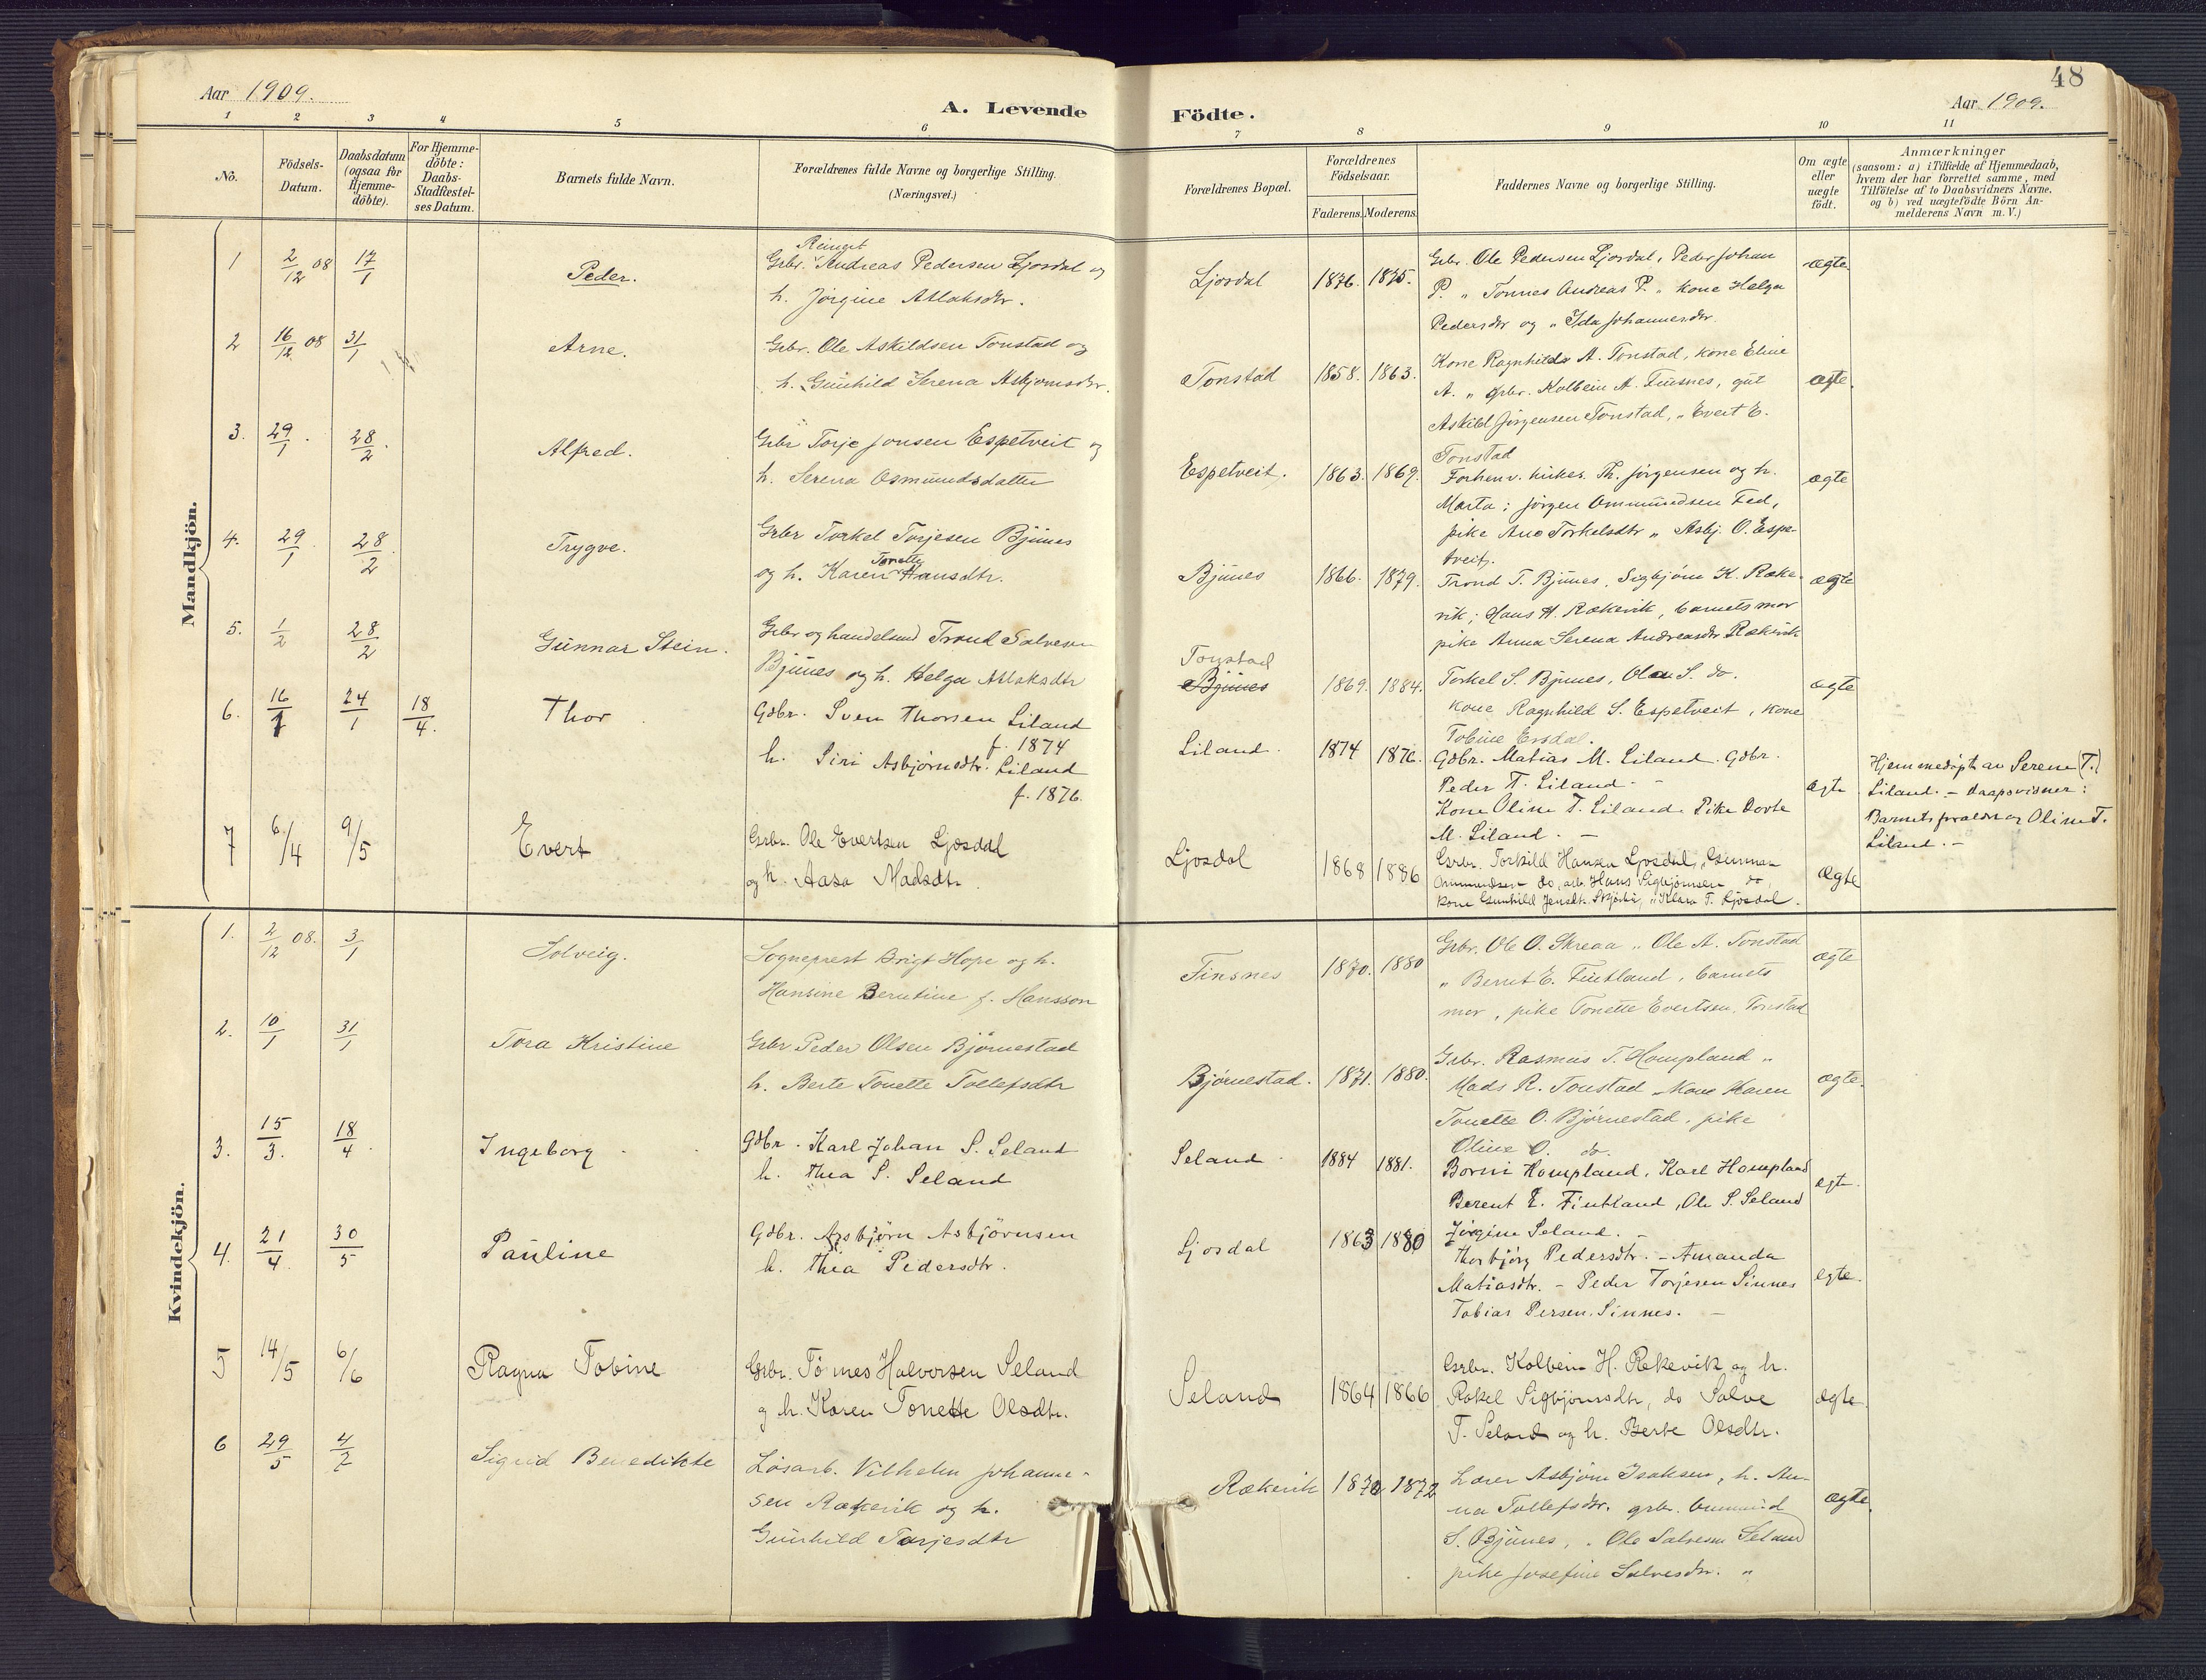 48
Aar 1909.
A. Levende Födte.
Aar 1909.
1 2 3 4 5 6 7 8 9 10 11
No.
Födsels-
Datum.
Daabsdatum
(ogsaa for
Hjemme-
döbte).
For Hjemme-
döbte:
Daabs-
Stadfæstel-
ses Datum.
Barnets fulde Navn.
Forældrenes fulde Navne og borgerlige Stilling.
(Næringsvei.)
Forældrenes Bopæl.
Forældrenes
Födselsaar.
Faderens. Moderens.
Faddernes Navne og borgerlige Stilling.
Om ægte
eller
uægte
födt.
Anmærkninger
(saasom: a) i Tilfælde af Hjemmedaab,
hvem der har forrettet samme, med
Tilföielse af to Daabsvidners Navne,
og b) ved uægtefödte Börn An-
melderens Navn m. V.)
Mandkjön.
1 2/12 08 17/1
Peder.
Reinert
Grbr. Andreas Pedersen Ljosdal og
h. Jörgine Atlaksdtr.
Ljosdal 1876. 1875.
Grbr. Ole Pedersen Ljosdal, Peder Johan
P. " Tönnes Andreas P. " kone Helga
Pedersdtr og " Ida Johannesdtr.
ægte
2 16/12 08 31/1
Arne.
Grbr. Ole Askildsen Tonstad og
h. Gunhild Serena Asbjørnsdtr.
Tonstad 1858. 1863.
Kone Ragnhilds A. Tonstad, kone Eline
A. " grbr. Kolbein A. Finsnes, gut
Askild Jörgensen Tonstad, " Evert E.
Tonstad
ægte.
3. 29/1. 28/2.
Alfred.
Grbr Torje Jonsen Espetveit og
h. Serena Osmundsdatter
Espetveit. 1863. 1869.
Forhenv. kirkes. Th. Jörgensen og h.
Marta; Jörgen Ommundsen Fed,
pike Ane Torkelsdtr " Asbj. O. Espe-
tveit.
ægte
4. 29/1. 28/2.
Trygve.
Grbr Torkel Torjesen Bjunes
Tonette
og h. Karen Hansdtr.
Bjunes 1866. 1879.
Trond T. Bjunes, Sigbjörn K. Röke-
vik; Hans H. Rökevik, barnets mor
pike Anna Serena Andreasdtr Rökevik
ægte
5. 1/2 28/2
Gunnar Stein.
Grbr og handelsmd Trond Salvesen
Bjunes og h. Helga Atlaksdtr
Tonstad
Bjunes 1869. 1884.
Torkel S. Bjunes, Olau S. do.
kone Ragnhild S. Espetveit, kone
Tobine Ersdal.
ægte
6. 16/1 24/1 18/4.
Thor
Gdbr. Sven Thorsen Liland
f. 1874
h. Siri Asbjörnsdtr. Liland
f. 1876.
Liland. 1874 1876.
Gdbr. Matias M. Liland. Gdbr.
Peder T. Liland. -
Kone Oline T. Liland. Pike Dorte
M. Liland. -
egte
Hjemmedöpt av Serene (T.)
Liland. - Daapsvidner:
Barnets forældre og Oline T.
Liland. -
7 6/4 9/5
Evert
Grbr. Ole Evertsen Ljosdal
og h. Aasa Madsdtr.
Ljosdal 1868 1886
Grbr. Torkild Hansen Ljosdal, Gunnar
Ommundsen do, arb. Hans Sigbjörnsen do,
kone Gunhild Jensdtr. , " Klara T. Ljosdal.
Ægte
Kvindekjön.
1. 2/12 08. 3/1
Solveig.
Sogneprest Brigt Hope og h.
Hansine Berntine f. Hansson
Finsnes 1870. 1880
Grbr. Ole O. Skreaa " Ole A. Tonstad
" Bernt E. Fintland, barnets
mor, pike Tonette Evertsen, Tonstad
ægte
2. 10/1 31/1
Tora Kristine
Grbr Peder Olsen Bjørnestad
h. Berte Tonette Tollefsdtr
Bjørnestad. 1871. 1880.
Grbr. Rasmus T. Hompland "
Mads R. Tonstad kone Karen
Tonette O. Bjørnestad, pike
Oline O. do.
ægte.
3. 15/3. 18/4.
Ingeborg
Gdbr. Karl Johan S. Seland
h. Thea S. Seland
Seland 1884 1881.
Borni Hompland, Karl Hompland
Berent E. Fintland, Ole S. Seland
Jörgine Seland. -
egte.
4. 21/4. 30/5
Pauline
Gdbr. Asbjörn Asbjörnsen
h. Thea Pedersdtr.
Ljosdal 1863 1880
Thorbjörg Pedersdtr. - Amanda
Matiasdtr. - Peder Torjesen Sinnes
Tobias Persen. Sinnes. -
egte.
5 14/5 6/6
Ragna Tobine
Grbr. Tönnes Halvorsen Seland
og h. Karen Tonette Olsdtr.
Seland 1864 1866
Grbr. Kolbein H. Rekevik og h.
Rakel Sigbjørnsdtr, do Salve
T. Seland og h. Berte Olsdtr.
ægte
6 29/5 4/7
Sigrid Benedikte
Løsarb. Vilhelm Johanne-
sen Rækevik og h.
Gunhild Tarjesdtr
Rækevik 1870 1872
Lærer Asbjörn Isaksen, h. An-
na Tollefsdtr. grbr. Ommund
S. Bjunes, " Ole Salvesen Seland
pike Josefine Salvesdtr. "
ægte.